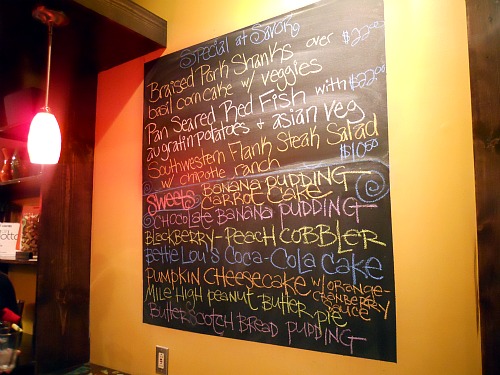 Special at Savory
Braised Pork Shanks over $22.00
basil corn cake w/ veggies
Pan Seared Red Fish with $22.00
augratin potatoes + asian veg
Southwestern Flank Steak Salad
w/ chipotle ranch $10.50
Sweets Banana Pudding
Carrot Cake
Chocolate Banana Pudding
Blackberry-Peach Cobbler
Bettie Lou's Coca-Cola Cake
Pumpkin Cheesecake w/ orange-
cranberry
sauce
Mile High Peanut Butter Pie
Butterscotch Bread Pudding